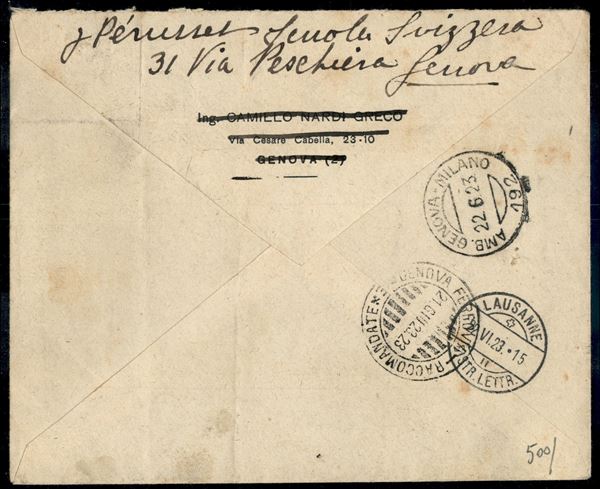 J Pérusset Scuola Svizzera
31 Via Peschiera Genova
Ing. CAMILLO NARDI GRECO
Via Cesare Cabella, 23-10
GENOVA (2)
AMB. GENOVA-MILANO 492
22.6.23
GENOVA FERROVIA
RACCOMANDATE
21.GIU.23-23
LAUSANNE
VI.23.-15
STR. LETTR.
500/